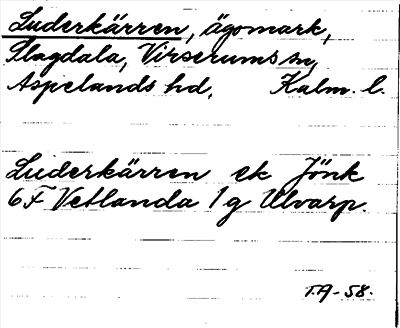 Luderkärren, ägomark,
Slagdala, Virserums sn,
Aspelands hd, Kalm. l.
Luderkärren ek Jönk
6F Vetlanda 1g Ulvarp.
T.A-58.